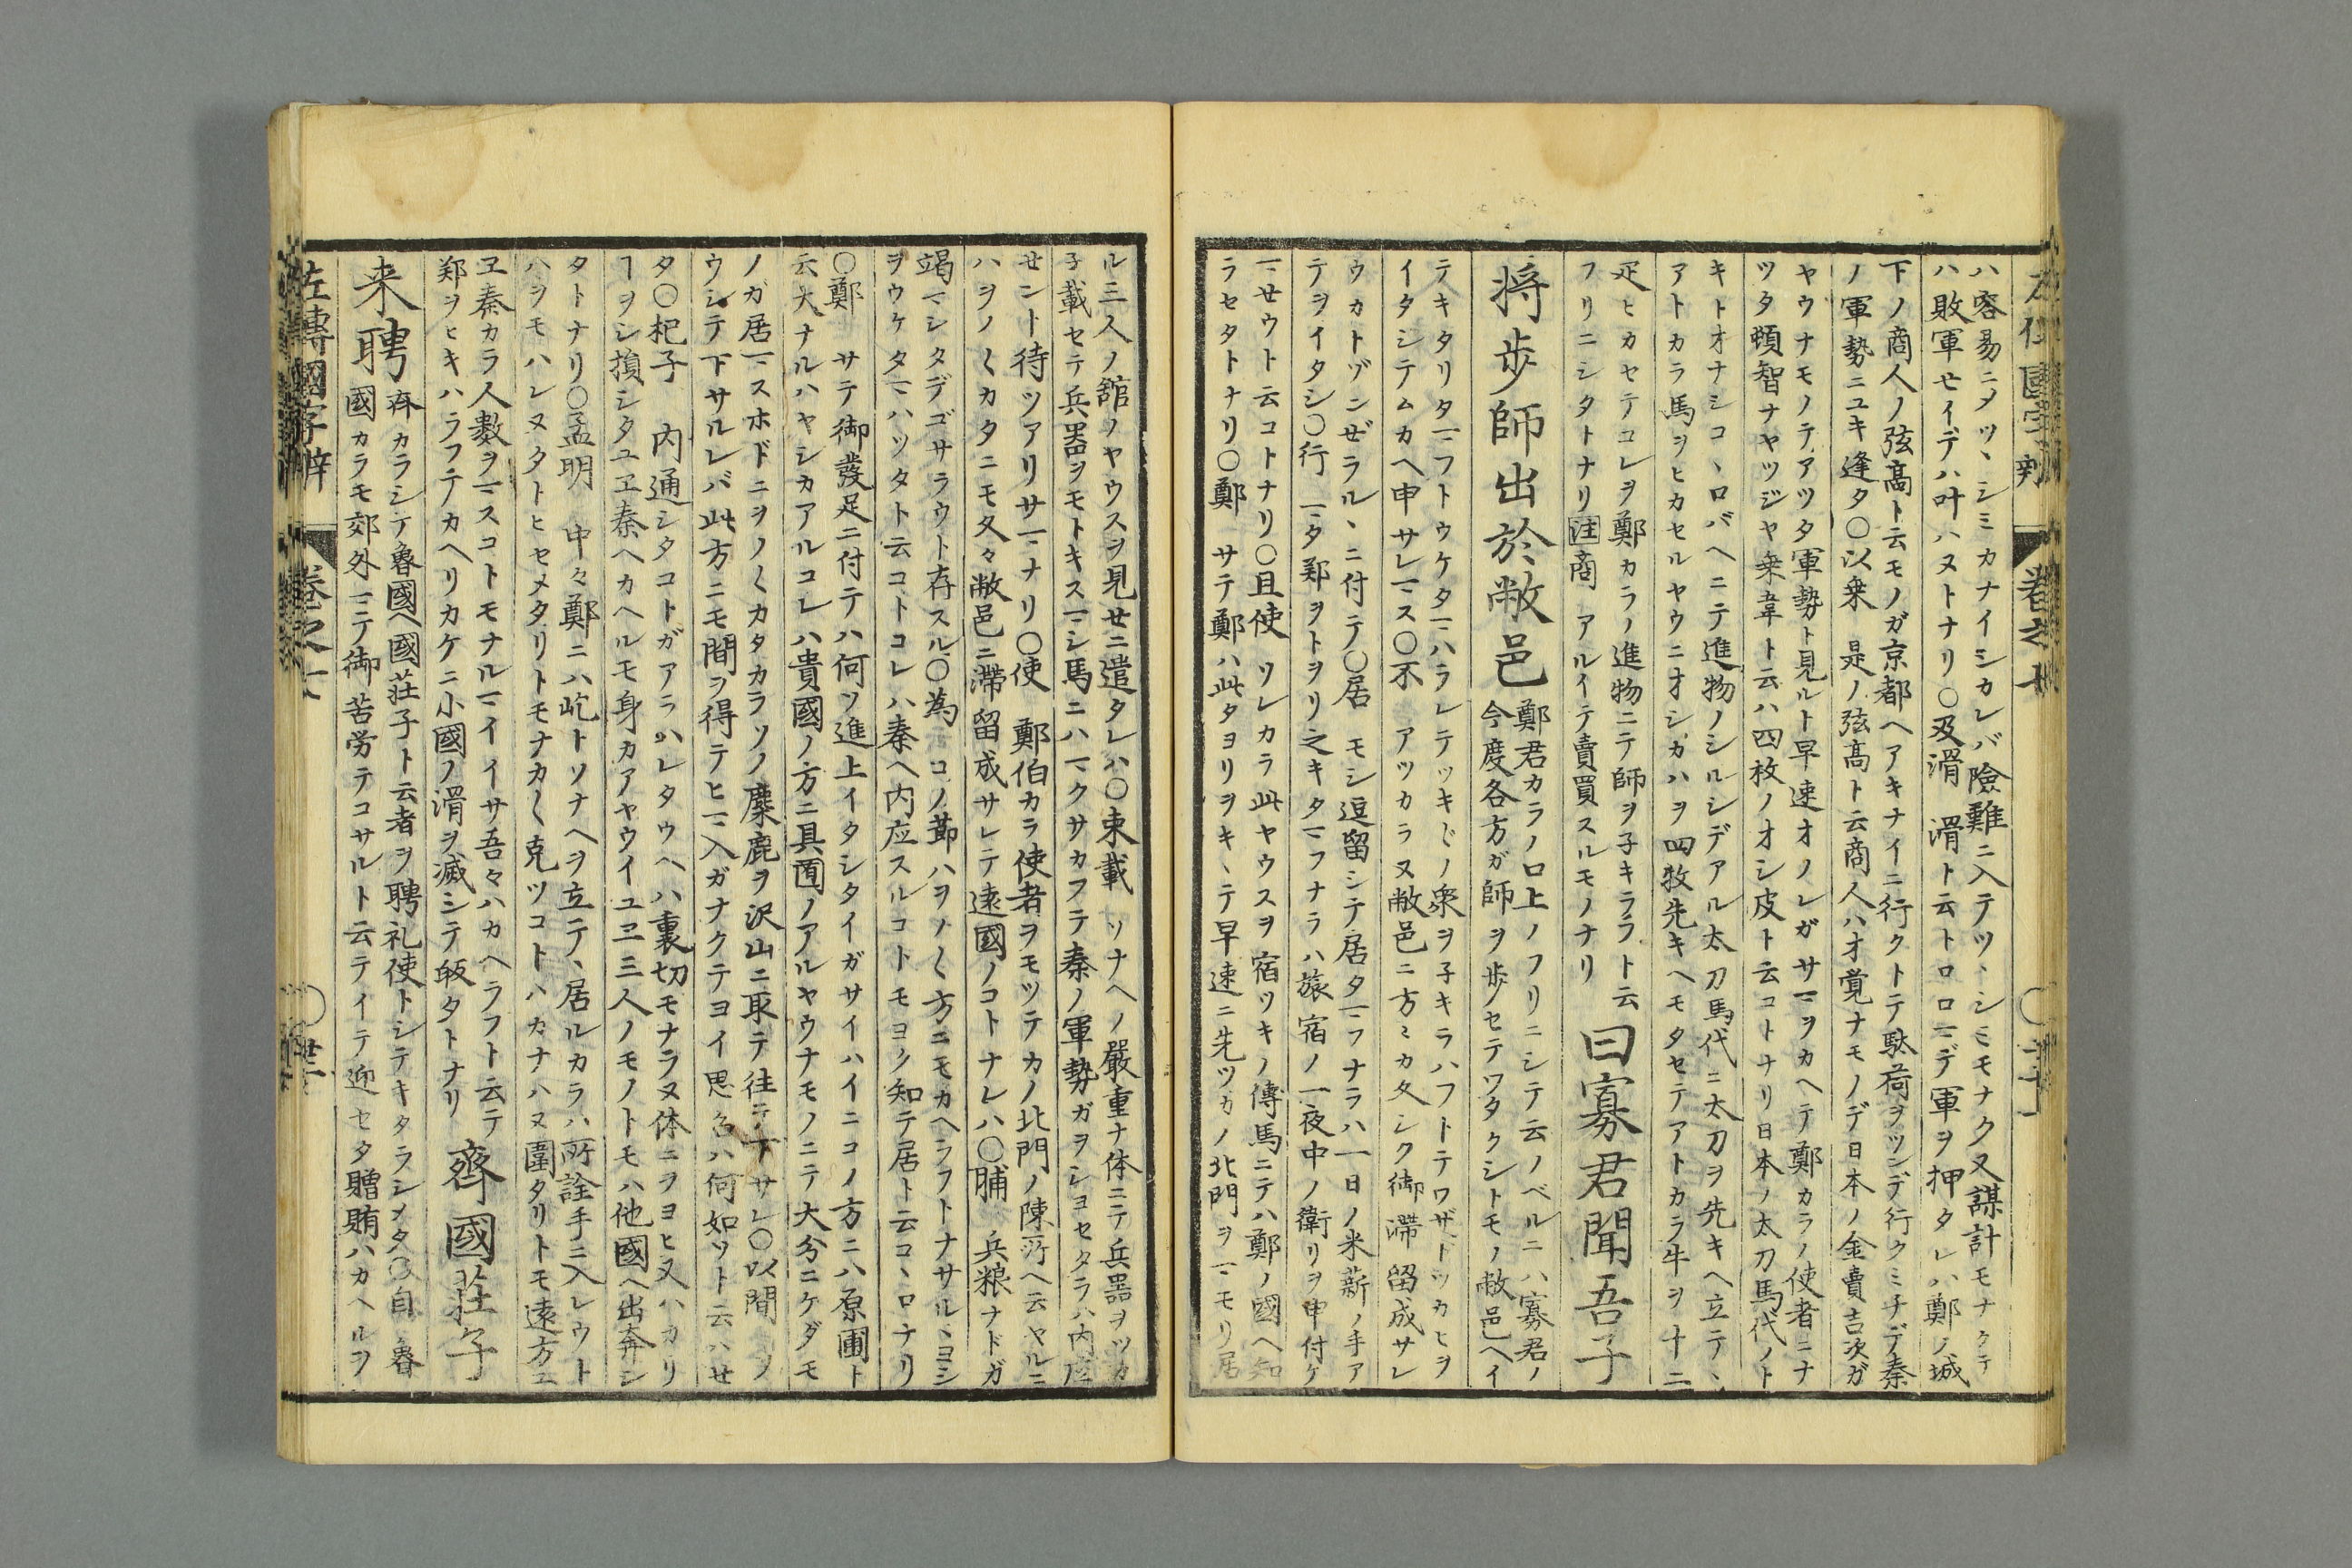 左傳國字辨 卷之七 〇三十
ハ容易ニメツヽシミカナイシカレバ險難ニ入テツヽシミモナク又謀計モナクテ
ハ敗軍セイデハ叶ハヌトナリ〇及滑 滑ト云トコロマデ軍ヲ押タレハ鄭ノ城
下ノ商人ノ弦高ト云モノガ京都ヘアキナイニ行クトテ駄荷ヲツンデ行クミチデ秦
ノ軍勢ニユキ逢タ〇以乗 是ノ弦高ト云商人ハオ覚ナモノデ日本ノ金賣吉次ガ
ヤウナモノテアツタ軍勢ト見ルト早速オノレガサマヲカヘテ鄭カラノ使者ニナ
ツタ頓智ナヤツジヤ乗韋ト云ハ四枚ノオシ皮ト云コトナリ日本ノ太刀馬代ノト
キトオナシコヽロバヘニテ進物ノシルシデアル太刀馬代ニ太刀ヲ先キヘ立テヽ
アトカラ馬ヲヒカセルヤウニオシカハヲ四牧先キヘモタセテアトカラ牛ヲ十二
疋ヒカセテコレヲ鄭カラノ進物ニテ師ヲ子キラフト云
フリニシタトナリ注商 アルイテ賣買スルモノナリ
曰寡君聞吾子
将歩師出於敝邑
鄭君カラノロ上ノフリニシテ云ノベルニハ寡君ノ
今度各方ガ師ヲ歩セテワタクシトモノ敝邑ヘイ
テキタリタマフトウケタマハラレテツキ〴〵ノ衆ヲ子キラハフトテワザトツカヒヲ
イタシテムカヘ申サレマス〇不 アツカラヌ敝邑ニ方々カ久シク御滞留成サレ
ウカトゾンゼラルヽニ付テ〇居 モシ逗留シテ居タマフナラハ一日ノ米薪ノ手ア
テヲイタシ〇行 マタ鄭ヲトヲリ之キタマフナラハ旅宿ノ一夜中ノ衛リヲ申付ケ
マセウト云コトナリ〇且使 ソレカラ此ヤウスヲ宿ツキノ傳馬ニテハ鄭ノ國ヘ知
ラセタトナリ〇鄭 サテ鄭ハ此タヨリヲキヽテ早速ニ先ツカノ北門ヲマモリ居
ル三人ノ舘ノヤウスヲ見セニ遣タレハ〇束載 ソナヘノ嚴重ナ体ニテ兵器ヲツカ
子載セテ兵器ヲモトキスマシ馬ニハマクサカフテ秦ノ軍勢ガヲシヨセタラハ内应
セント待ツアリサマナリ〇使 鄭伯カラ使者ヲモツテカノ北門ノ陳所ヘ云ヤルニ
ハヲノ〱カタニモ久々敝邑ニ滞留成サレテ遠國ノコトナレハ〇脯 兵粮ナドガ
竭マシタデゴサラウト存スル〇為 コノ莭ハヲノ〱方ニモカヘラフトナサルヽヨシ
ヲウケタマハツタト云コトコレハ秦ヘ内应スルコトモヨク知テ居ト云コヽロナリ
〇鄭 サテ御發足ニ付テハ何ソ進上イタシタイガサイハイニコノ方ニハ原圃ト
云大ナルハヤシカアルコレハ貴國ノ方ニ具囿ノアルヤウナモノニテ大分ニケダモ
ノガ居マスホドニヲノ〱カタカラソノ麋鹿ヲ沢山ニ取テ往テ下サレ〇以閒 ソ
ウシテ下サルレバ此方ニモ閒ヲ得テヒマ入ガナクテヨイ思召ハ何如ツト云ハセ
タ〇杞子 内通シタコトガアラハレタウヘハ裏切モナラヌ体ニヲヨヒ又ハカリ
ヿヲシ損シタユヱ秦ヘカヘルモ身カアヤウイユヱ三人ノモノトモハ他國ヘ出奔シ
タトナリ〇孟明 中々鄭ニハ屹トソナヘヲ立テヽ居ルカラハ所詮手ニ入レウト
ハヲモハレヌタトヒセメタリトモナカ〱克ツコトハカナハヌ圍タリトモ遠方ユ
ヱ秦カラ人數ヲマスコトモナルマイイサ吾々ハカヘラフト云テ
鄭ヲヒキハラフテカヘリカケニ小國ノ滑ヲ滅シテ皈タトナリ
齊國荘子
来聘
齊カラシテ魯國ヘ國荘子ト云者ヲ聘礼使トシテキタラシメタ〇自 魯
國カラモ郊外マテ御苦労テコサルト云テイテ迎セタ贈賄ハカヘルヲ
左傳國字辨 卷之七